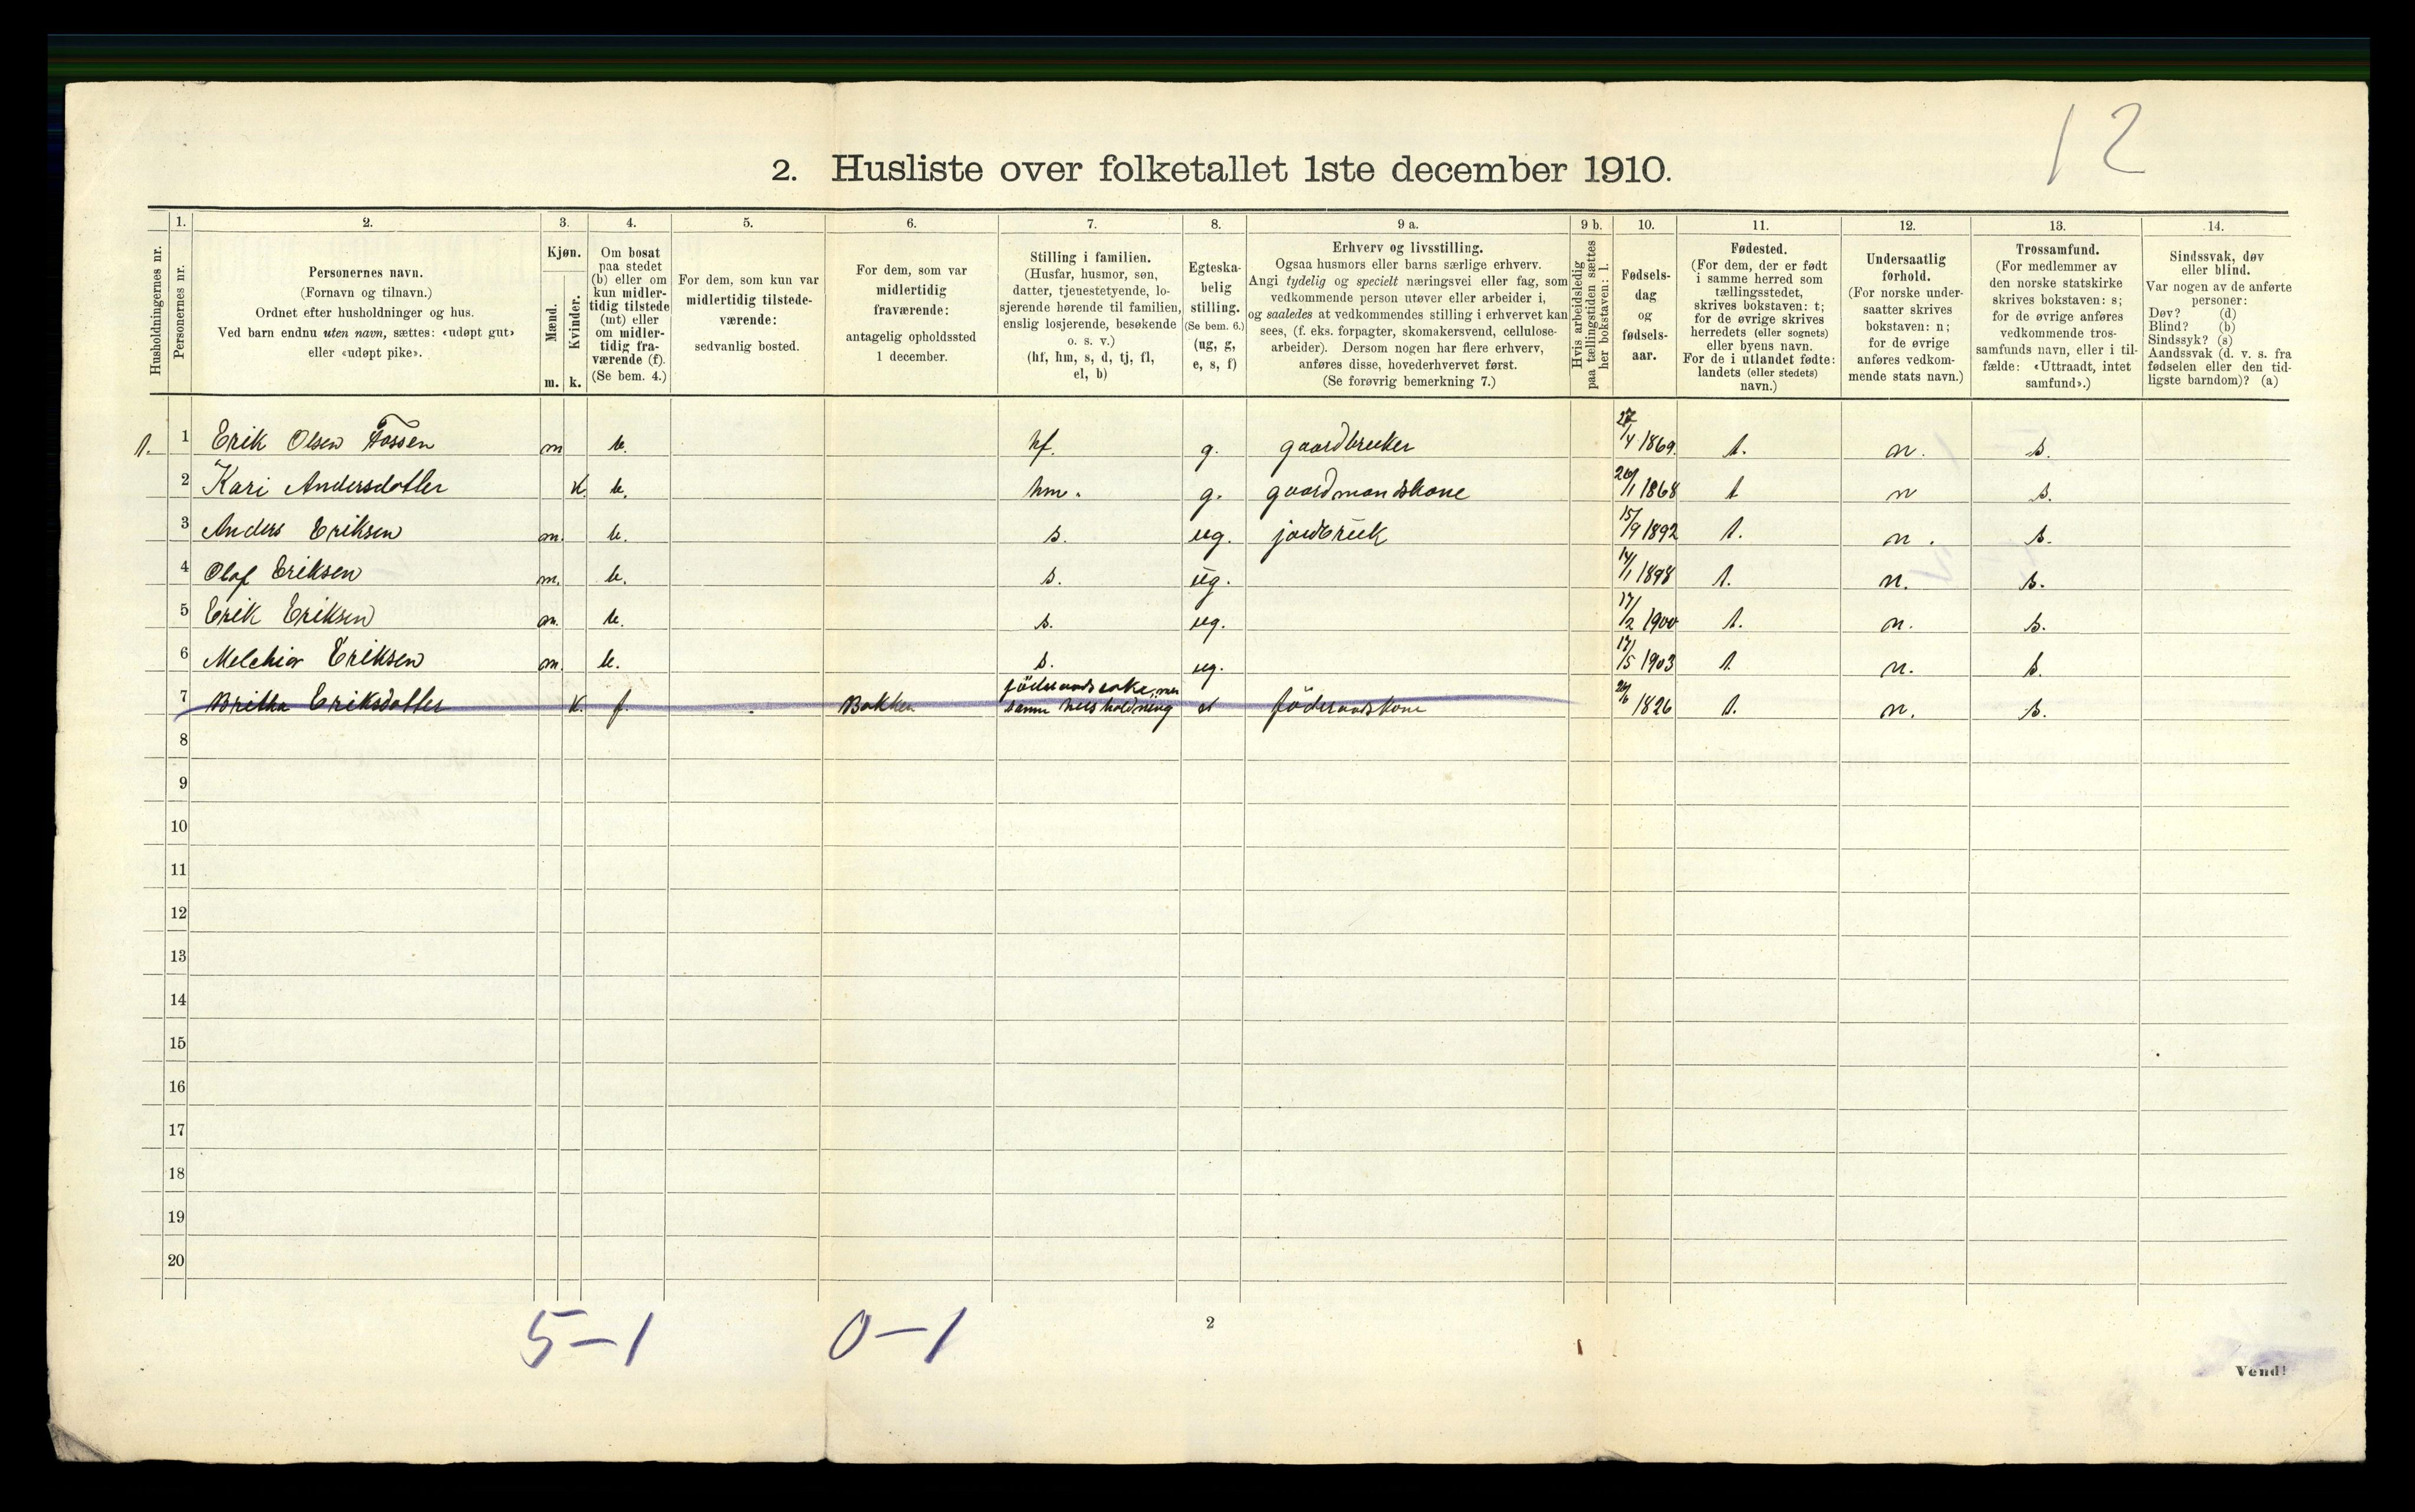 12
2. Husliste over folketallet 1ste december 1910.
Husholdningernes nr.
1.
Personernes nr.
2.
Personernes navn.
(Fornavn og tilnavn.)
Ordnet efter husholdninger og hus.
Ved barn endnu uten navn, sættes: «udøpt gut»
eller «udøpt pike».
3.
Kjøn.
Mænd.
m.
Kvinder.
k.
4.
Om bosat
paa stedet
(b) eller om
kun midler-
tidig tilstede
(mt) eller
om midler-
tidig fra-
værende (f).
(Se bem. 4.)
5.
For dem, som kun var
midlertidig tilstede-
værende:
sedvanlig bosted.
6.
For dem, som var
midlertidig
fraværende:
antagelig opholdssted
1 december.
7.
Stilling i familien.
(Husfar, husmor, søn,
datter, tjenestetyende, lo-
sjerende hørende til familien,
enslig losjerende, besøkende
o. s. v.)
(hf, hm, s, d, tj, fl,
el, b)
8.
Egteska-
belig
stilling.
(Se bem. 6.)
(ug, g,
e, s, f)
9 a.
Erhverv og livsstilling.
Ogsaa husmors eller barns særlige erhverv.
Angi tydelig og specielt næringsvei eller fag, som
vedkommende person utøver eller arbeider i,
og saaledes at vedkommendes stilling i erhvervet kan
sees, (f. eks. forpagter, skomakersvend, cellulose-
arbeider). Dersom nogen har flere erhverv,
anføres disse, hovederhvervet først.
(Se forøvrig bemerkning 7.)
9 b.
Hvis arbeidsledig
paa tællingstiden sættes
her bokstaven: l.
10.
Fødsels-
dag
og
fødsels-
aar.
11.
Fødested.
(For dem, der er født
i samme herred som
tællingsstedet,
skrives bokstaven: t;
for de øvrige skrives
herredets (eller sognets)
eller byens navn.
For de i utlandet fødte:
landets (eller stedets)
navn.)
12.
Undersaatlig
forhold.
(For norske under-
saatter skrives
bokstaven: n;
for de øvrige
anføres vedkom-
mende stats navn.)
13.
Trossamfund.
(For medlemmer av
den norske statskirke
skrives bokstaven: s;
for de øvrige anføres
vedkommende tros-
samfunds navn, eller i til-
fælde: «Uttraadt, intet
samfund».)
14.
Sindssvak, døv
eller blind.
Var nogen av de anførte
personer:
Døv? (d)
Blind? (b)
Sindssyk? (s)
Aandssvak (d. v. s. fra
fødselen eller den tid-
ligste barndom)? (a)
1. 1 Erik Olsen Fossen m b. hf. g. gaardbruker 27/4 1869. t. n. s.
2 Kari Andersdatter k. b. hm. g. gaardmandskone 26/1 1868 t n s.
3 Anders Eriksen m. b. s. ug. jordbruk 15/9 1892 t. n. s.
4 Olaf Eriksen m. b. s. ug. 14/1 1898 t. n. s.
5 Erik Eriksen m. b. s. ug. 17/2 1900 t. n. s.
6 Melchior Eriksen m. b. s. ug. 17/5 1903 t. n. s.
7 Britha Eriksdatter k. f Bakken samme husholdning föderaadskone 1826 t. n. s.
8
9
10
11
12
13
14
15
16
17
18
19
20
5-1 0-1
2
Vend!